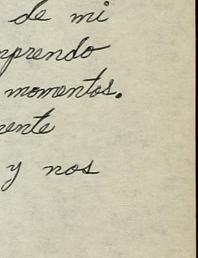 de mi
mprendo
momentos.
mente
y nos